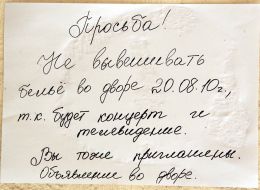 Просьба!
Не вывешивать
бельё во дворе 20.08.10г.,
т.к. будет концерт и
телевидение.
Вы тоже приглашены.
Объявление во дворе.